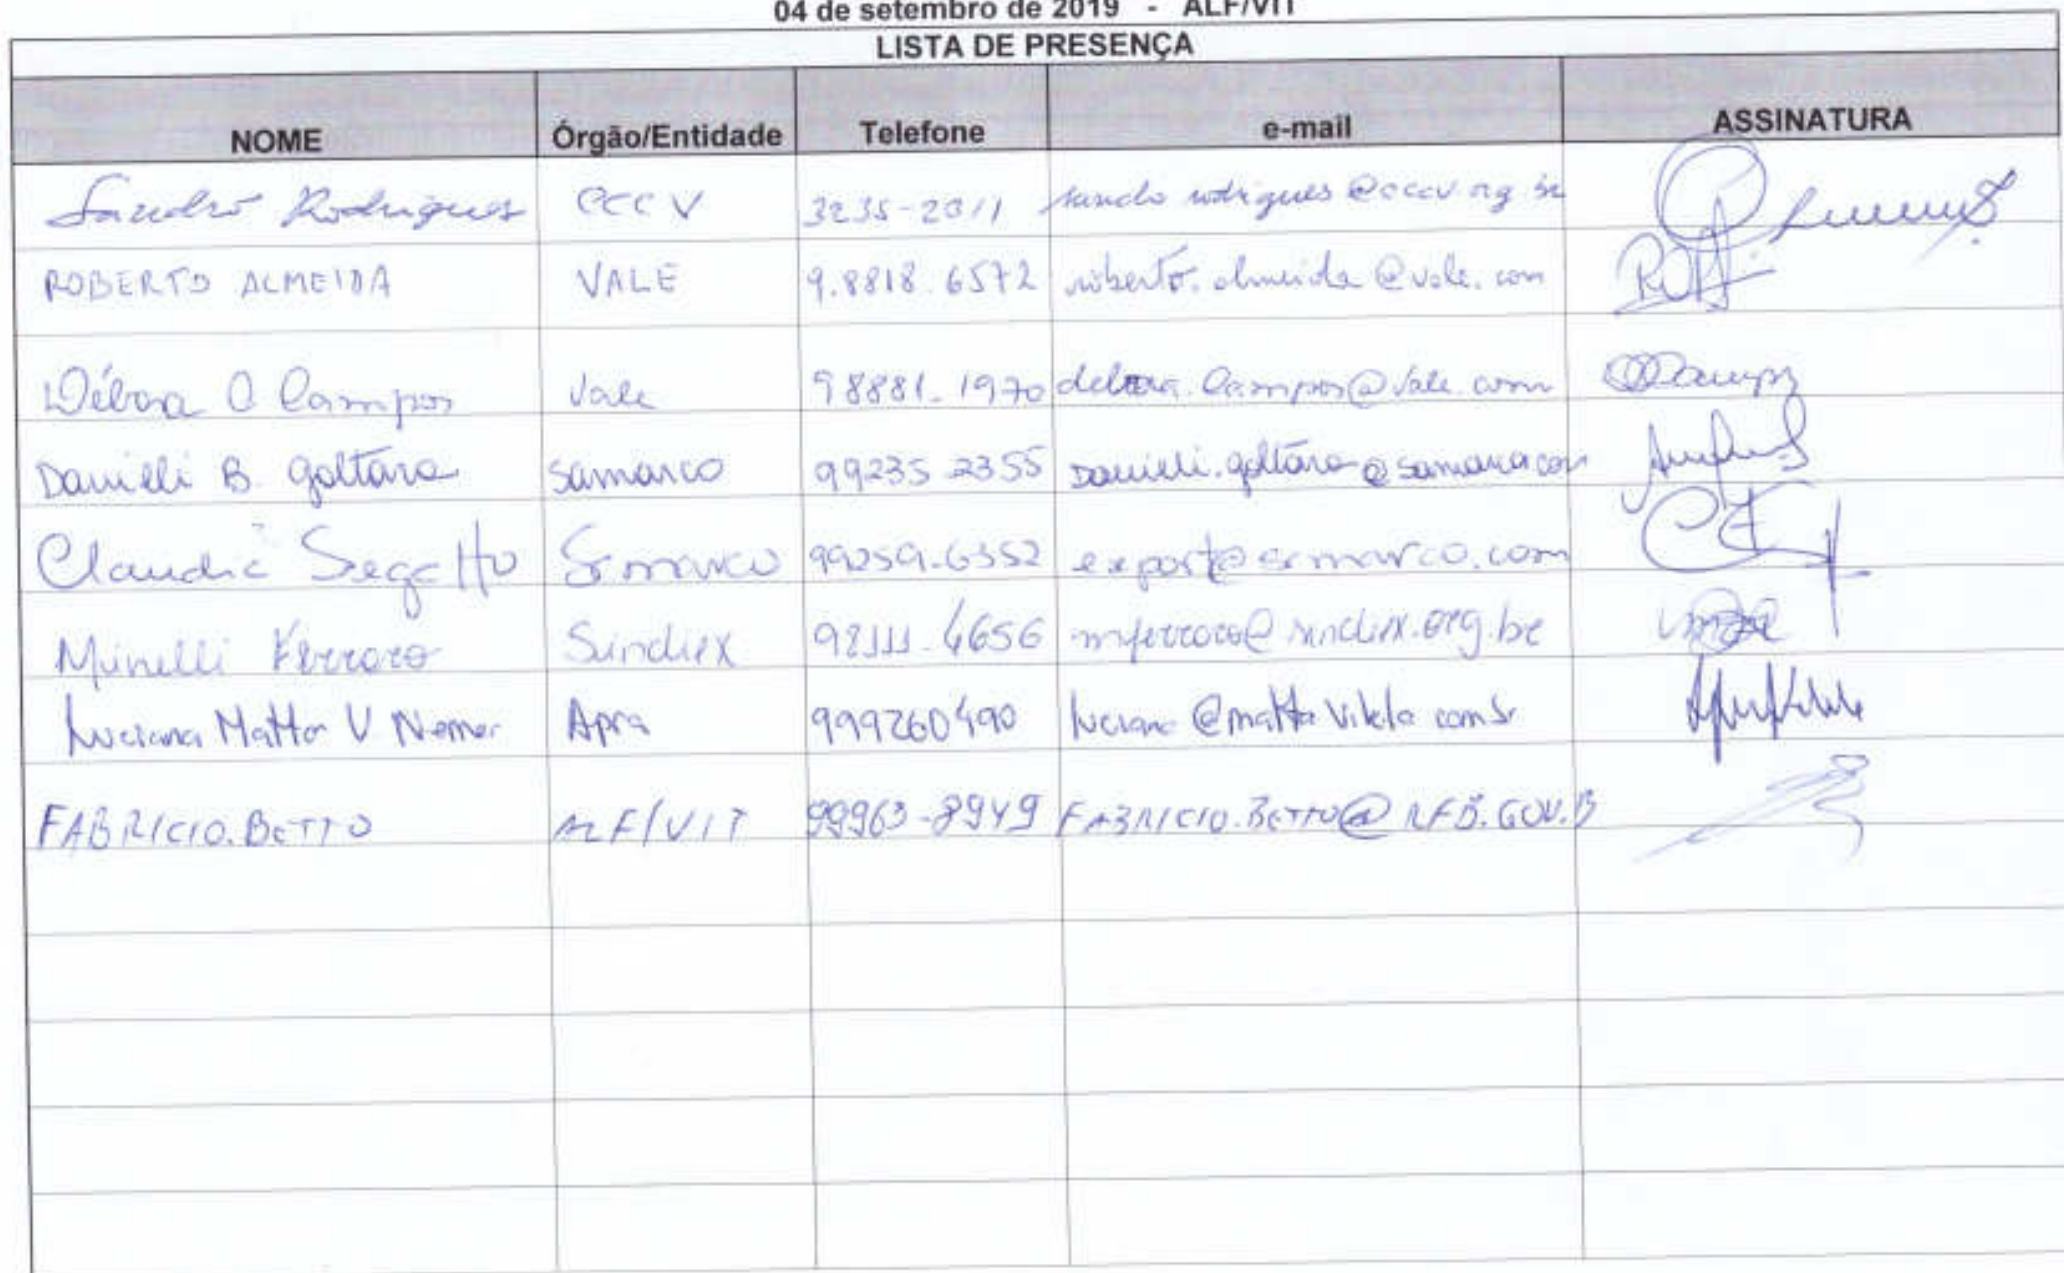 04 de setembro de 2019 - ALF/VIT
LISTA DE PRESENÇA
NOME Órgão/Entidade Telefone e-mail ASSINATURA
Sandro Rodrigues CCCV 3235-2011 sandro rodrigues@cccv.org.br
ROBERTO ALMEIDA VALE 9.8818.6572 roberto.almeida@vale.com
Débora O Campos Vale 98881-1970 debora.Campos@Vale.com
Danielli B. goltara samarco 99235 2355 Danielli.goltara@samarco.com
Claudia Segatto Samarco 99259-6352 export@samarco.com
Minelli Ferraro Sindiex 98111-4656 mferraro@sindiex.org.br
Luciana Matta V Nemer Apra 999260490 luciana@matta Vilela com br
FABRICIO.BETTO ALF/VIT 99963-8949 FABRICIO.BETTO@RFB.GOV.B